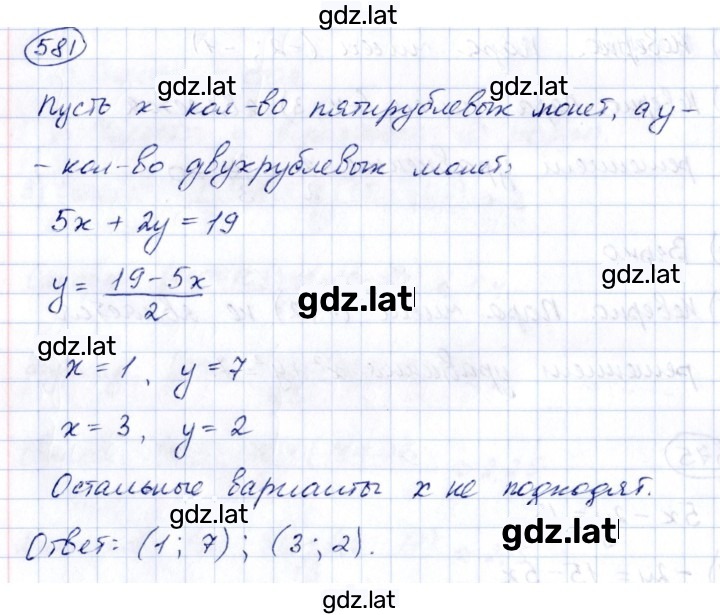 gdz.lat
581
gdz.lat
Пусть x - кол-во пятирублевых монет, а y -
gdz.lat
- кол-во двухрублевых монет:
5x + 2y = 19
gdz.lat
y = (19 - 5x) / 2
gdz.lat
gdz.lat
x = 1, y = 7
x = 3, y = 2
Остальные варианты x не подходят.
gdz.lat
gdz.lat
Ответ: (1; 7); (3; 2).
gdz.lat